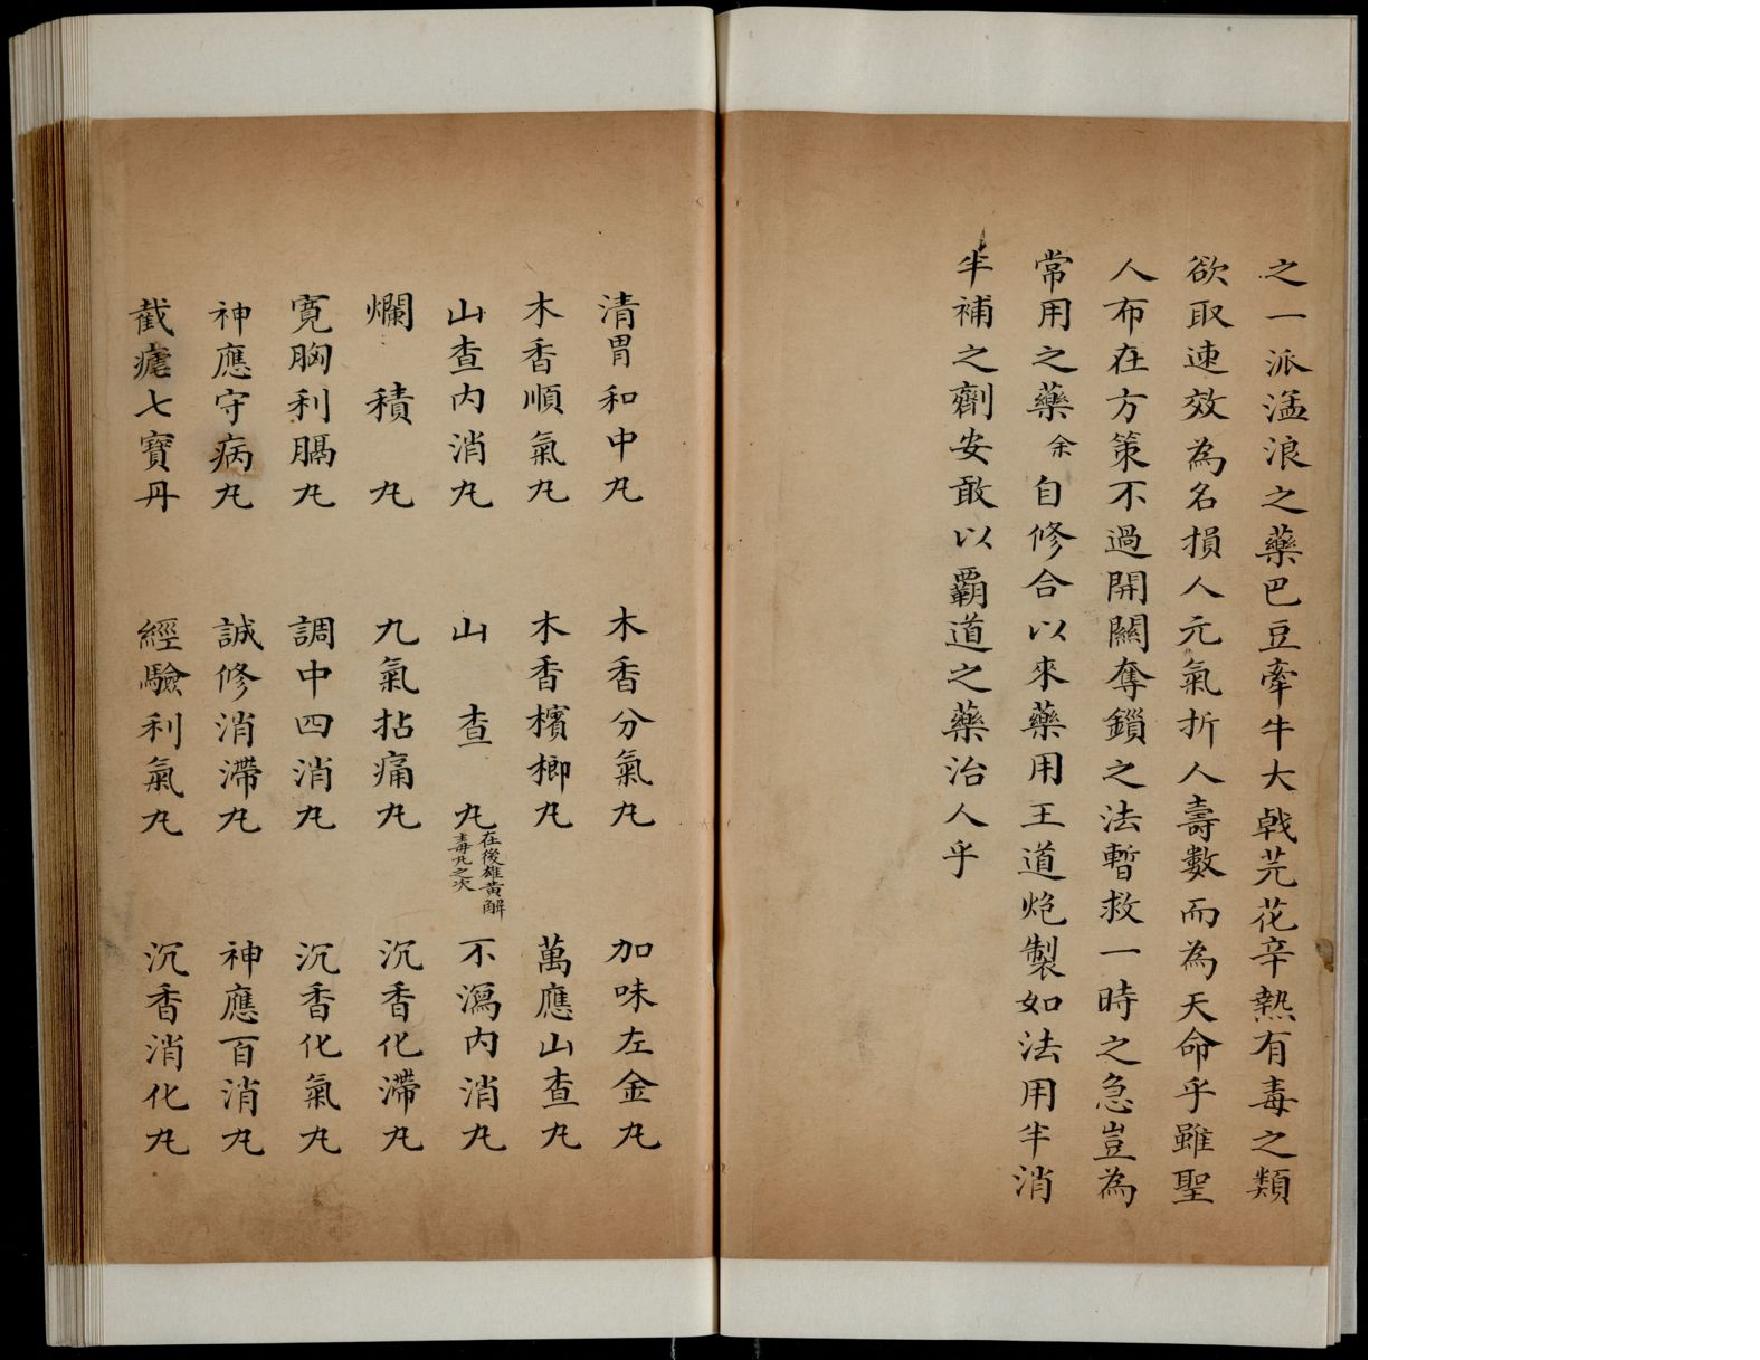 之一派濫浪之藥巴豆牽牛大戟芫花辛熱有毒之類
欲取速效為名損人元氣折人壽數而為天命乎雖聖
人布在方策不過開關奪鎖之法暫救一時之急豈為
常用之藥余自修合以來藥用王道炮製如法用半消
半補之劑安敢以霸道之藥治人乎
清胃和中丸 木香分氣丸 加味左金丸
木香順氣丸 木香檳榔丸 萬應山查丸
山查內消丸 山查丸在後雄黃解毒丸之次 不瀉內消丸
爛積丸 九氣拈痛丸 沉香化滯丸
寬胸利膈丸 調中四消丸 沉香化氣丸
神應守病丸 誠修消滯丸 神應百消丸
截瘧七寶丹 經驗利氣丸 沉香消化丸